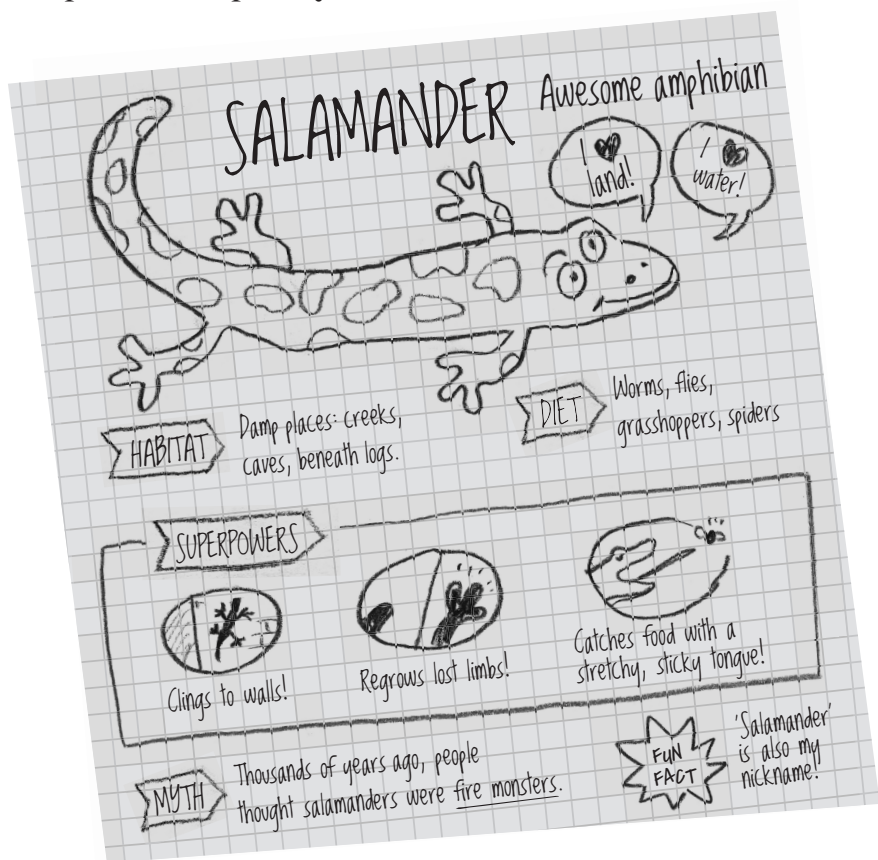 SALAMANDER
Awesome amphibian
I ♥
land!
I ♥
water!
HABITAT
Damp places: creeks,
caves, beneath logs.
DIET
Worms, flies,
grasshoppers, spiders
SUPERPOWERS
Clings to walls!
Regrows lost limbs!
Catches food with a
stretchy, sticky tongue!
MYTH
Thousands of years ago, people
thought salamanders were fire monsters.
FUN
FACT
'Salamander'
is also my
nickname!